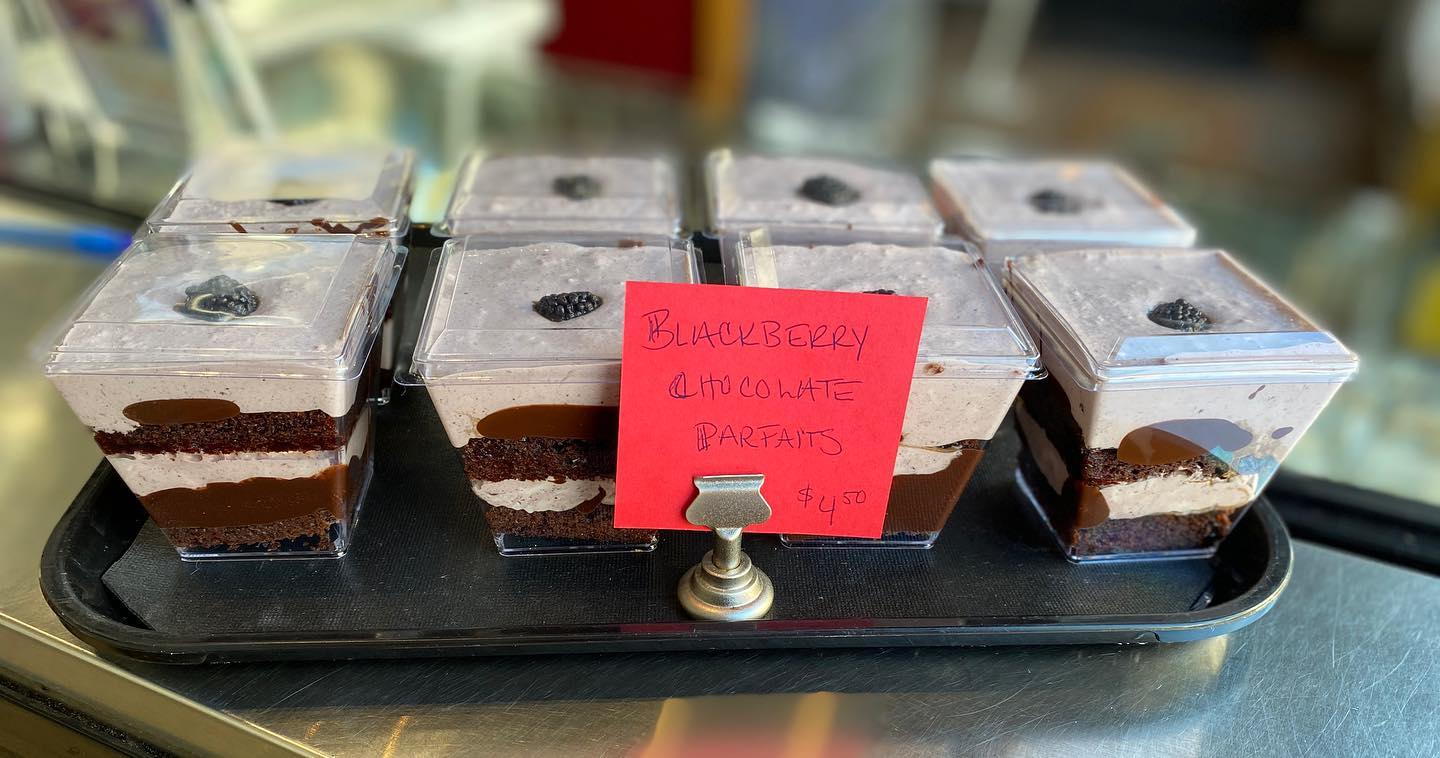 BLACKBERRY
CHOCOLATE
PARFAITS
$4.50